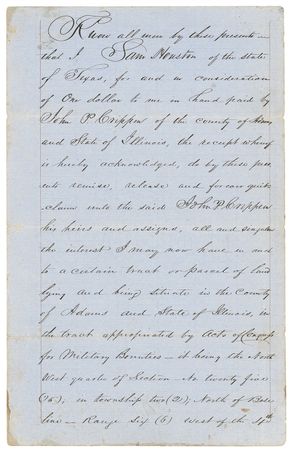 Know all men by these presents
that I Sam Houston of the state
of Texas, for and in consideration
of One dollar to me in hand paid by
John P. Crippen of the county of
and State of Illinois, the receipt whereof
is hereby acknowledged, do by these pres
ents remise, release and forever quit
claim unto the said John P. Crippen
his heirs and assigns, all and singular
the interest I may now have in and
to a certain tract or parcel of land
lying and being situate in the County
of Adams and State of Illinois, in
the tract appropriated by Acts of Congress
for Military Bounties – it being the North
West quarter of Section – No twenty five
(25), in township two (2), North of Base
line – Range Six (6) West of the 4th